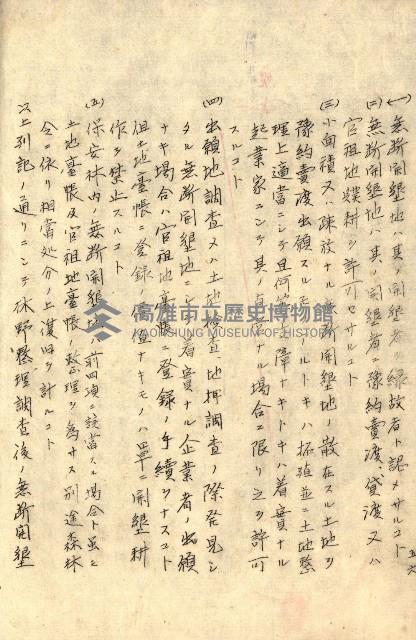 五六
(一)無断開墾地ハ其ノ開墾者ヲ縁故者ト認メサルコト
(二)無断開墾地ハ其ノ開墾者ニ豫約賣渡、貸渡又ハ
官租地贌耕ヲ許可セサルコト
(三)小面積又ハ疎放ナル無断開墾地ノ散在スル土地ヲ
豫約賣渡出願スルモノアルトキハ拓殖並ニ土地整
理上適當ニシテ且何等支障ナキトキハ着實ナル
起業家ニシテ其ノ目的ナル場合ニ限リ之ヲ許可
スルコト
(四)出願地調査又ハ土地檢査、地押調査ノ際発見シ
タル無断開墾地ニシテ着實ナル企業者ノ出願
ナキ場合ハ官租地臺帳ニ登録ノ手續ヲナスコト
但土地臺帳ニ登録ノ價値ナキモノハ單ニ開墾耕
作ヲ禁止スルコト
(五)保安林内ノ無断開墾地ハ前四項ニ該當スル場合ト雖モ
土地臺帳及官租地臺帳ノ整理ヲ為サス別途森林
令ニ依リ相當処分ノ上復旧ヲ計ルコト
以上列記ノ通リニシテ林野整理調査後ノ無断開墾
高雄市立歷史博物館
KAOHSIUNG MUSEUM OF HISTORY